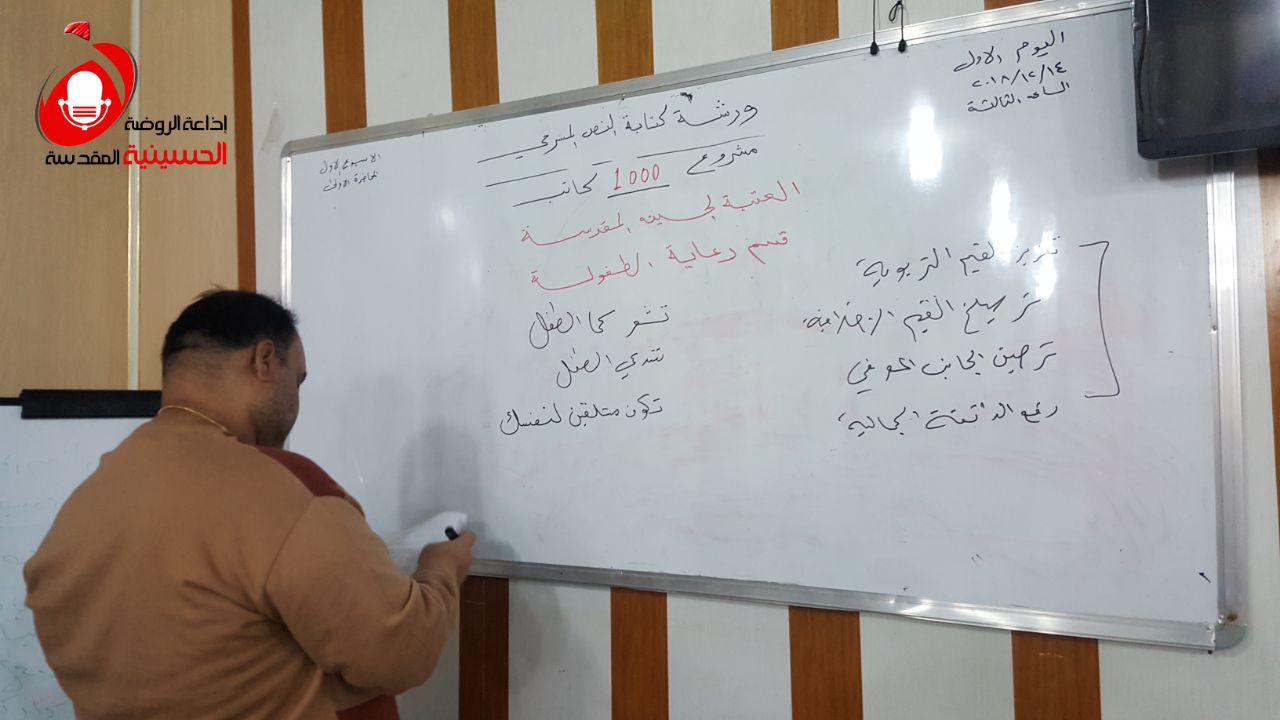 إذاعة الروضة
الحسينية المقدسة
اليوم الاول
٢٠١٨/١٢/١٤
الساعة الثالثة
ورشة كتابة النص المسرحي
مشروع 1000 كاتب
العتبة الحسينية المقدسة
قسم رعاية الطفولة
الاسبوع الاول
المحاضرة الاولى
تعزيز القيم التربوية
ترسيخ القيم الاخلاقية
ترصين الجانب المعرفي
رفع الذائقة الجمالية
تشعر كما الطفل
تتدعي الطفل
تكون متلقين لنفسك